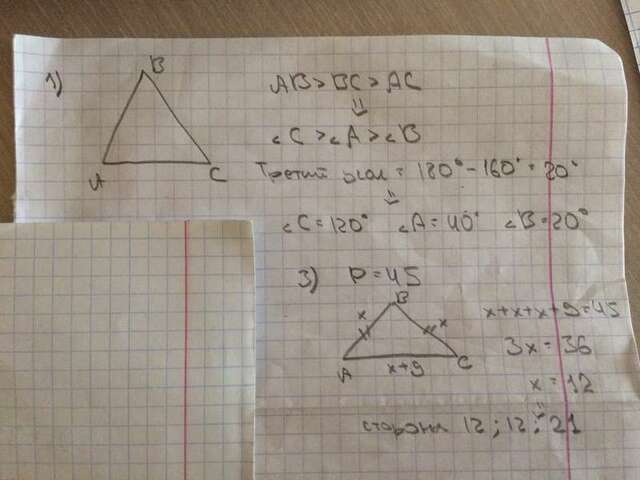 1)
B
A
C
AB > BC > AC
⇓
∠C > ∠A > ∠B
Третий угол = 180° - 160° = 20°
⇓
∠C = 120° ∠A = 40° ∠B = 20°
3) P = 45
B
x
x
A
x+9
C
x+x+x+9=45
3x = 36
x = 12
⇓
стороны 12; 12; 21